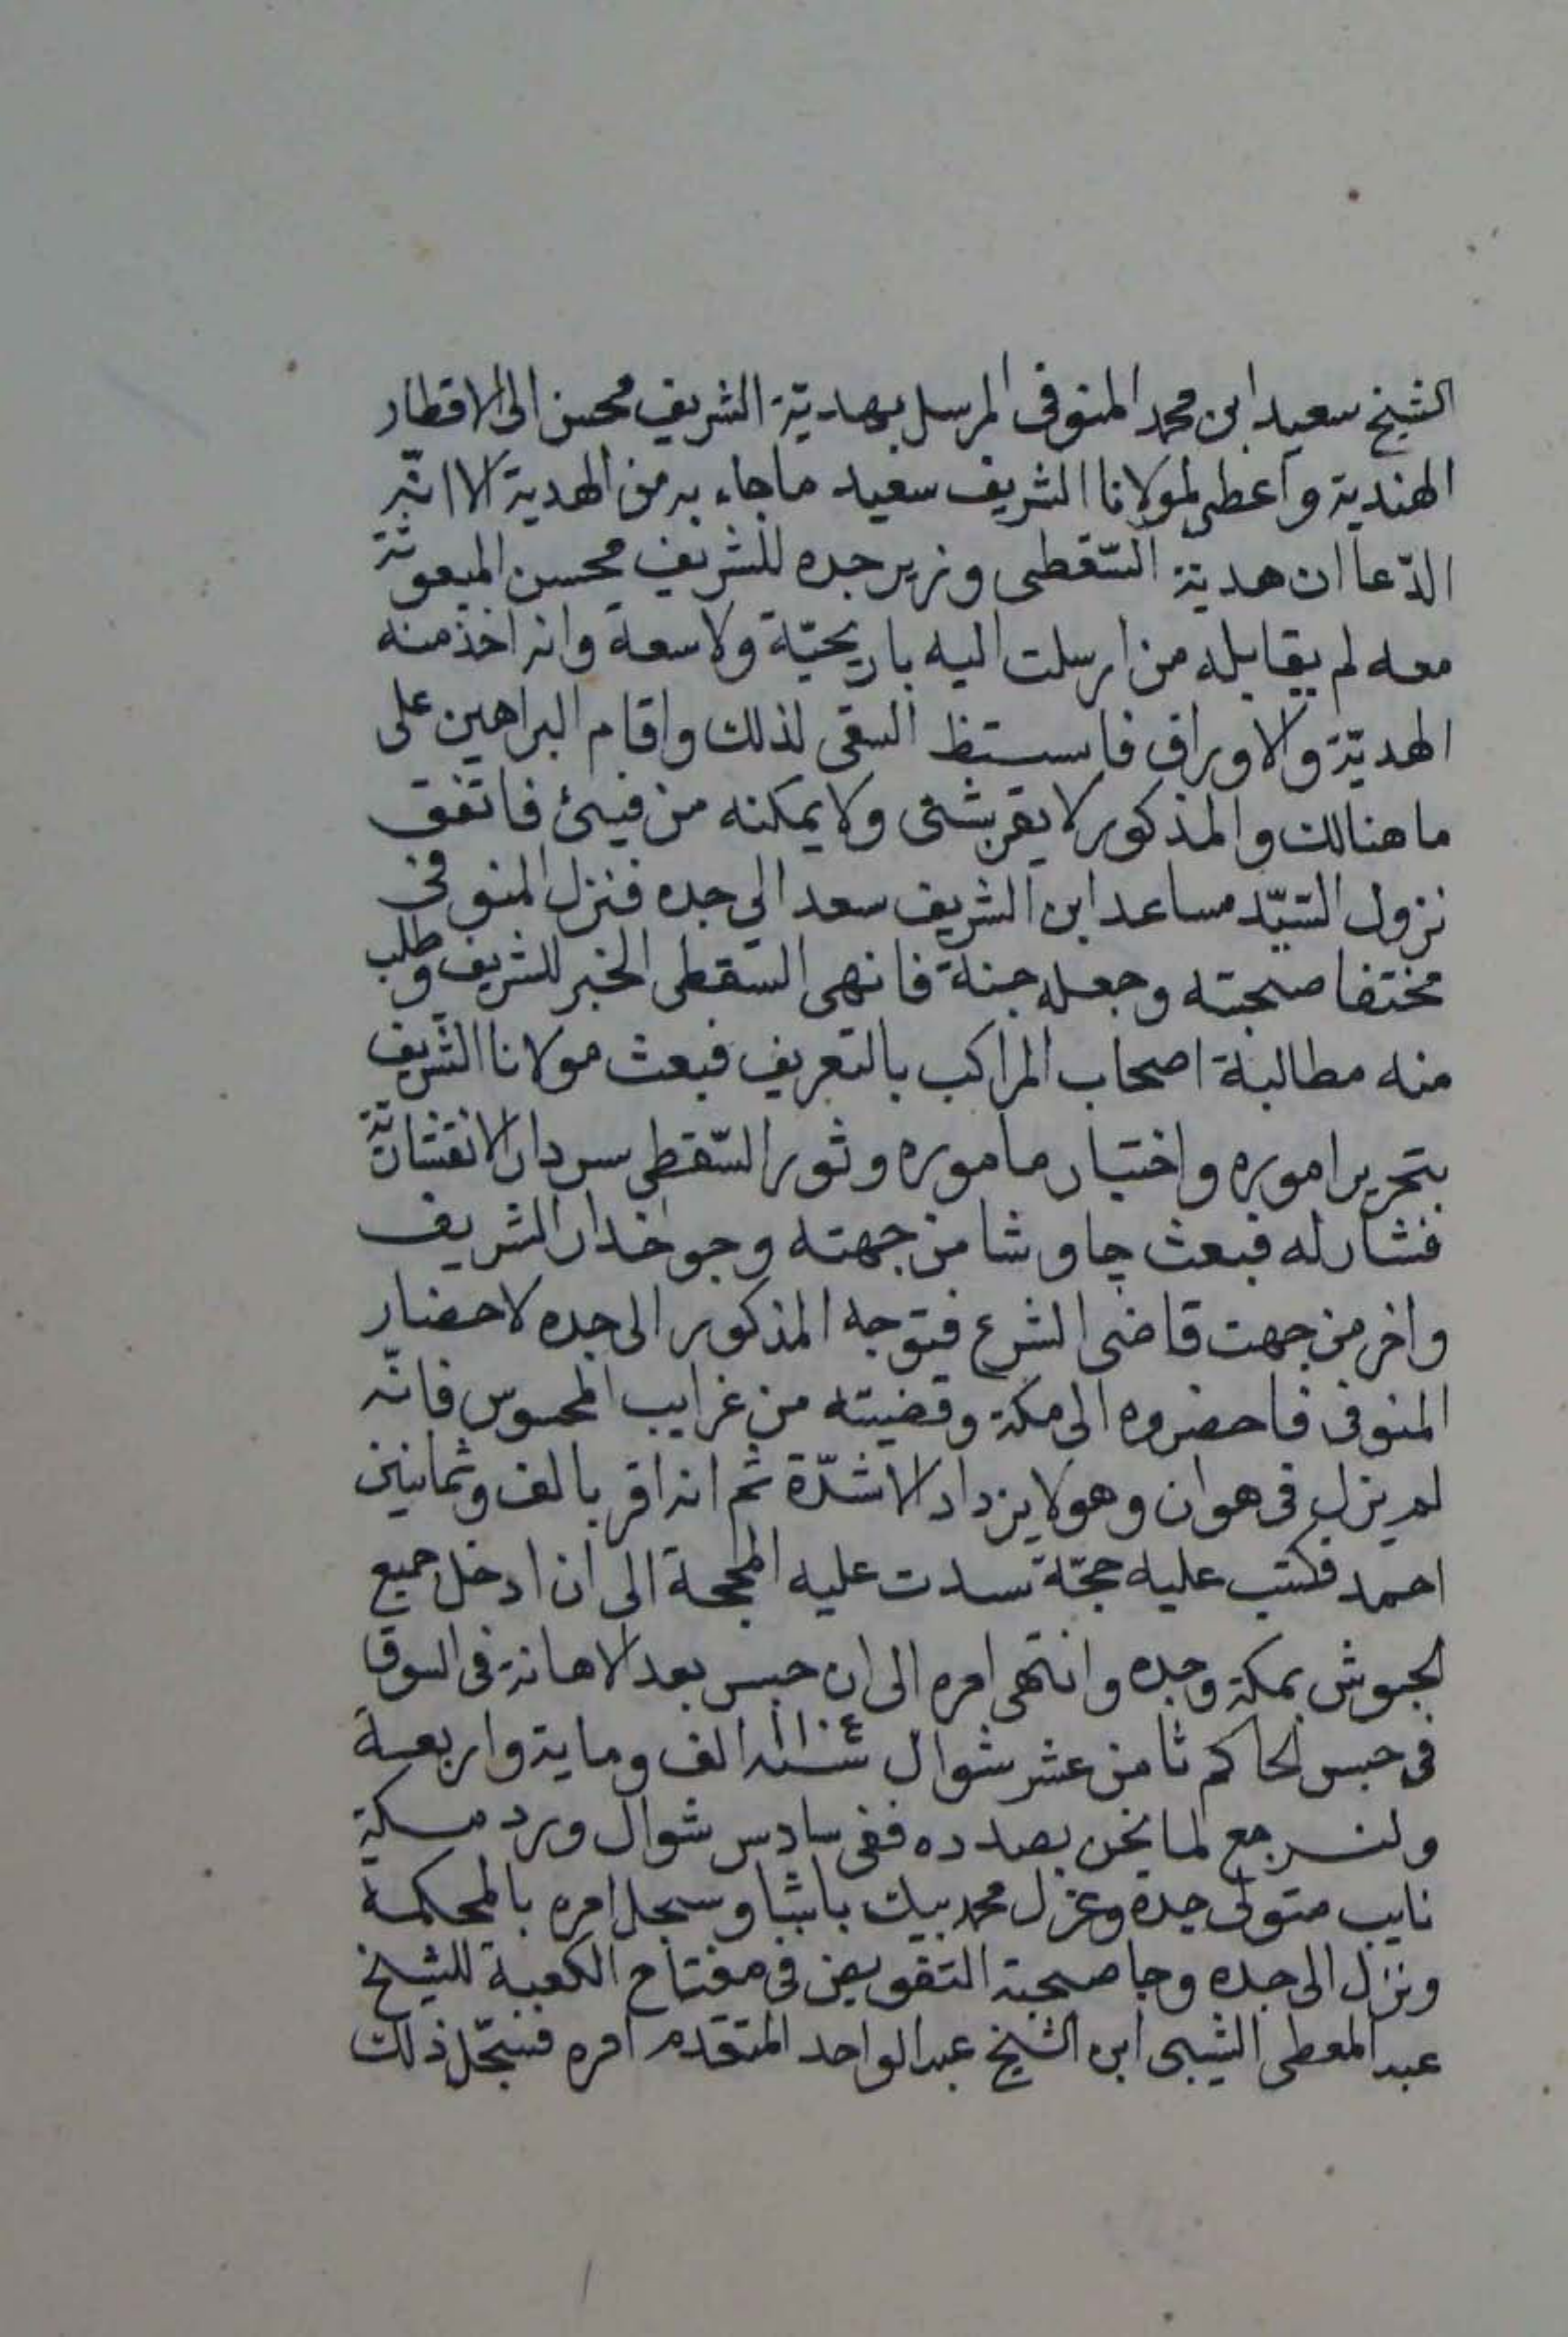 الشيخ سعيد ابن محمد المنوفى المرسل بهديّة الشريف محسن الى الاقطار
الهندية واعطى لمولانا الشريف سعيد ماجاء به من الهدية الا انّه
ادّعا ان هدية السّقطى وزير جده للشريف محسن المبعوثة
معه لم يقابله من ارسلت اليه باريحيّة ولا سعة وانه اخذ منه
الهديّة والاوراق السقى لذلك واقام البراهين على
ما هنالك والمذكور لا يقر بشئ ولا يمكنه من فيئ فاتفق
نزول السّيّد مساعد ابن الشريف سعد الى جده فنزل المنوفى
مختفا صحبته وجعله جنة فانهى السقطى الخبر للشريف وطلب
منه مطالبة اصحاب المراكب بالتعريف فبعث مولانا الشريف
بتحرير اموره واختبار ماموره وثور السّقطى سردار الانقشاريّة
فشار له فبعث چاوشا من جهته وجوخدار الشريف
واخر من جهت قاضى الشرع فتوجه المذكور الى جده لاحضار
المنوفى فاحضروه الى مكة وقضيته من غرايب المحسوس فانّه
لم يزل فى هوان وهو لا يزداد الا شدّة ثم انه اقر بالف وثمانين
احمد فكتب عليه حجّة سدت عليه المحجة الى ان ادخل جميع
الحبوش بمكة وجده وانتهى امره الى ان حبس بعد الاهانة فى السوق
فى حبس الحاكم ثامن عشر شوال سنة الف وماية واربعة
ولنرجع لما نحن بصدده ففى سادس شوال ورد مكة
نايب متولى جدة وعزل محمد بيك باشا وسجل امره بالمحكمة
ونزل الى جده وجا صحبته التفويض فى مفتاح الكعبة للشيخ
عبد المعطى الشيبى ابن الشيخ عبد الواحد المتقدم امره فسجّل ذلك